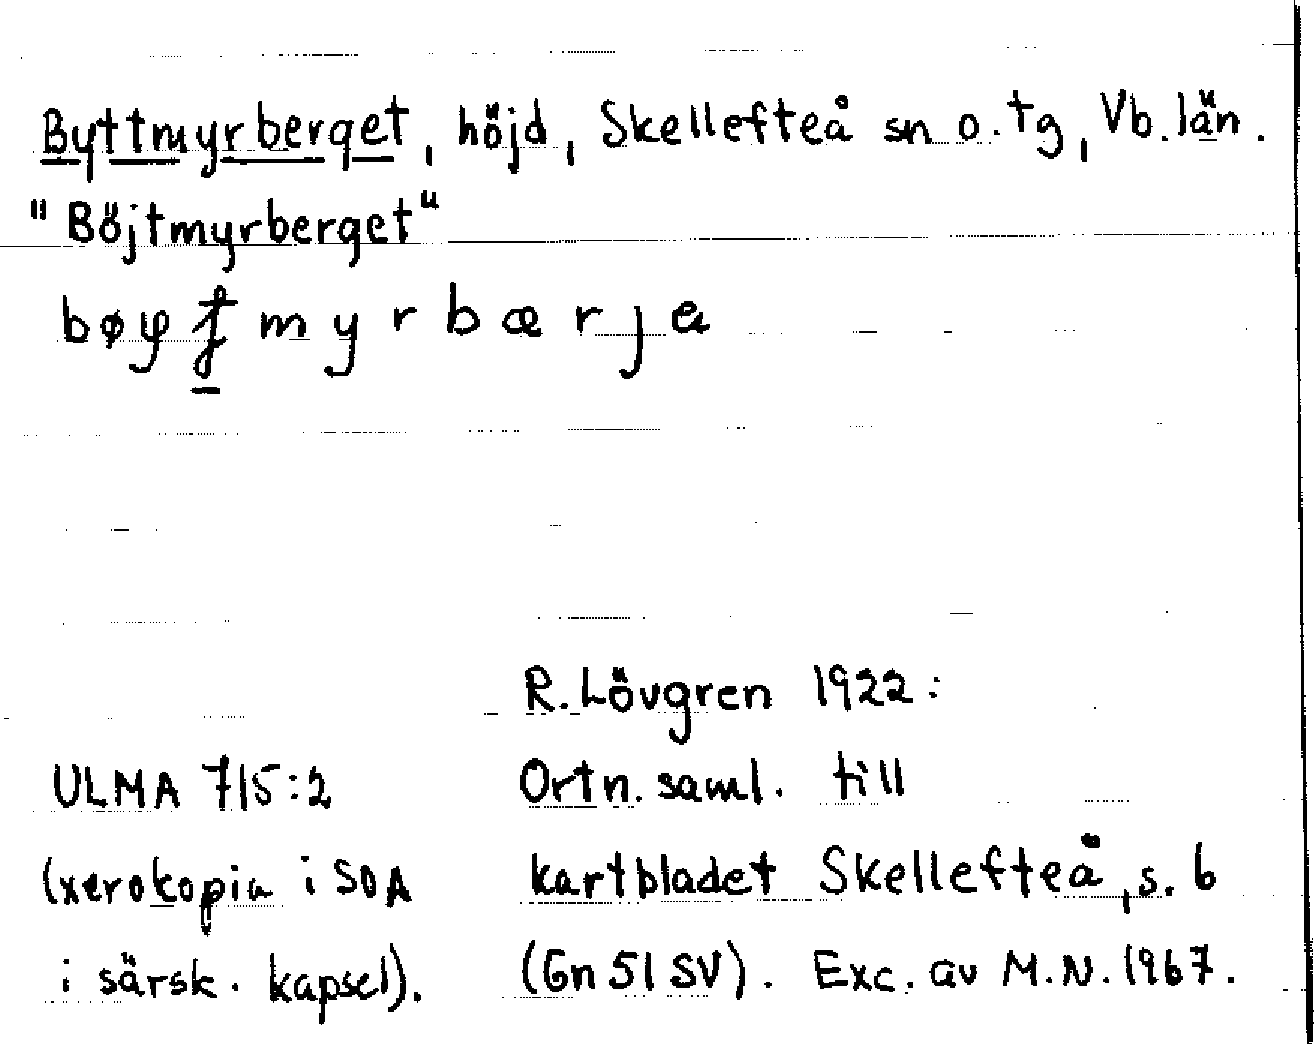 Byttmyrberget, höjd, Skellefteå sn o. tg, Vb. län.
"Böjtmyrberget"
myrbærja
R. Lövgren 1922:
ULMA 715:2 Ortn. saml. till
(xerokopia i SOA kartbladet Skellefteå, s. 6
i särsk. kapsel). (Gn 51 SV). Exc. av M.N. 1967.